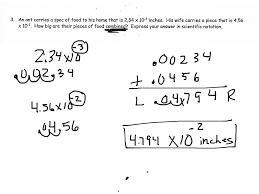 3. An ant carries a spec of food to his home that is 2.34 x 10⁻³ inches. His wife carries a piece that is 4.56
x 10⁻². How big are their pieces of food combined? Express your answer in scientific notation.
2.34x10⁻³
0.002.34
4.56x10⁻²
.04.56
.00234
+ .0456
L .04794 R
4.794 x10⁻² inches